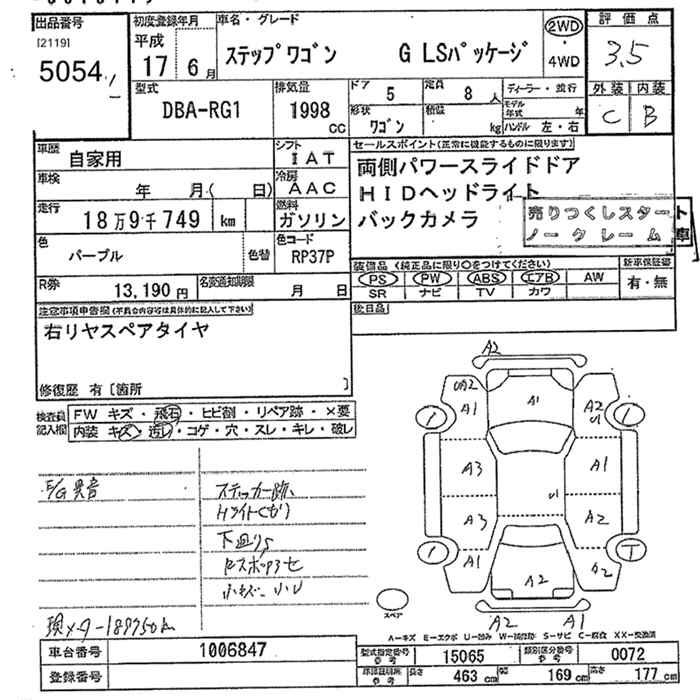 出品番号
[2119]
5054
初度登録年月
平成
17 6月
車名・グレード
ステップワゴン G LSパッケージ
2WD
・
4WD
評価点
3.5
外装 内装
C B
型式
DBA-RG1
排気量
1998
CC
ドア
5
定員
8 人
形状
ワゴン
積載
kg
ディーラー・並行
モデル年式 年
ハンドル 左・右
車歴
自家用
シフト
IAT
車検
年 月( 日)
冷房
AAC
走行
18万9千749 km
燃料
ガソリン
色
パープル
色替
色コード
RP37P
R券
13,190円
名変期限
月 日
セールスポイント(正常に機能するものに限ります)
両側パワースライドドア
HIDヘッドライト
バックカメラ
売りつくしスタート
ノークレーム車
装備品(純正品に限り○をつけてください)
PS PW ABS エアB AW
SR ナビ TV カワ
新車保証書
有・無
後日品
注意事項申告欄(不具合内容等は具体的に記入して下さい)
右リヤスペアタイヤ
修復歴 有〔箇所 〕
検査員
記入欄
FW キズ・飛石・ヒビ割・リペア跡・×要
内装 キズ・汚レ・コゲ・穴・スレ・キレ・破レ
E/G異音
ステッカー跡、
Hライトくもり
下廻りS
小キズ・小U
現メーター189750k
A2
A1
A2
A1
A2
U1
A3
A1
U1
A3
A2
A1
A2
A2
T
スペア
A2 A1
A-キズ E-エクボ U-凹み W-補修跡 S-サビ C-腐食 XX-交換済
車台番号
1006847
登録番号
型式指定番号
参考
15065
類別区分番号
参考
0072
車検証明所
参考
長さ 463 cm
幅 169 cm
高さ 177 cm